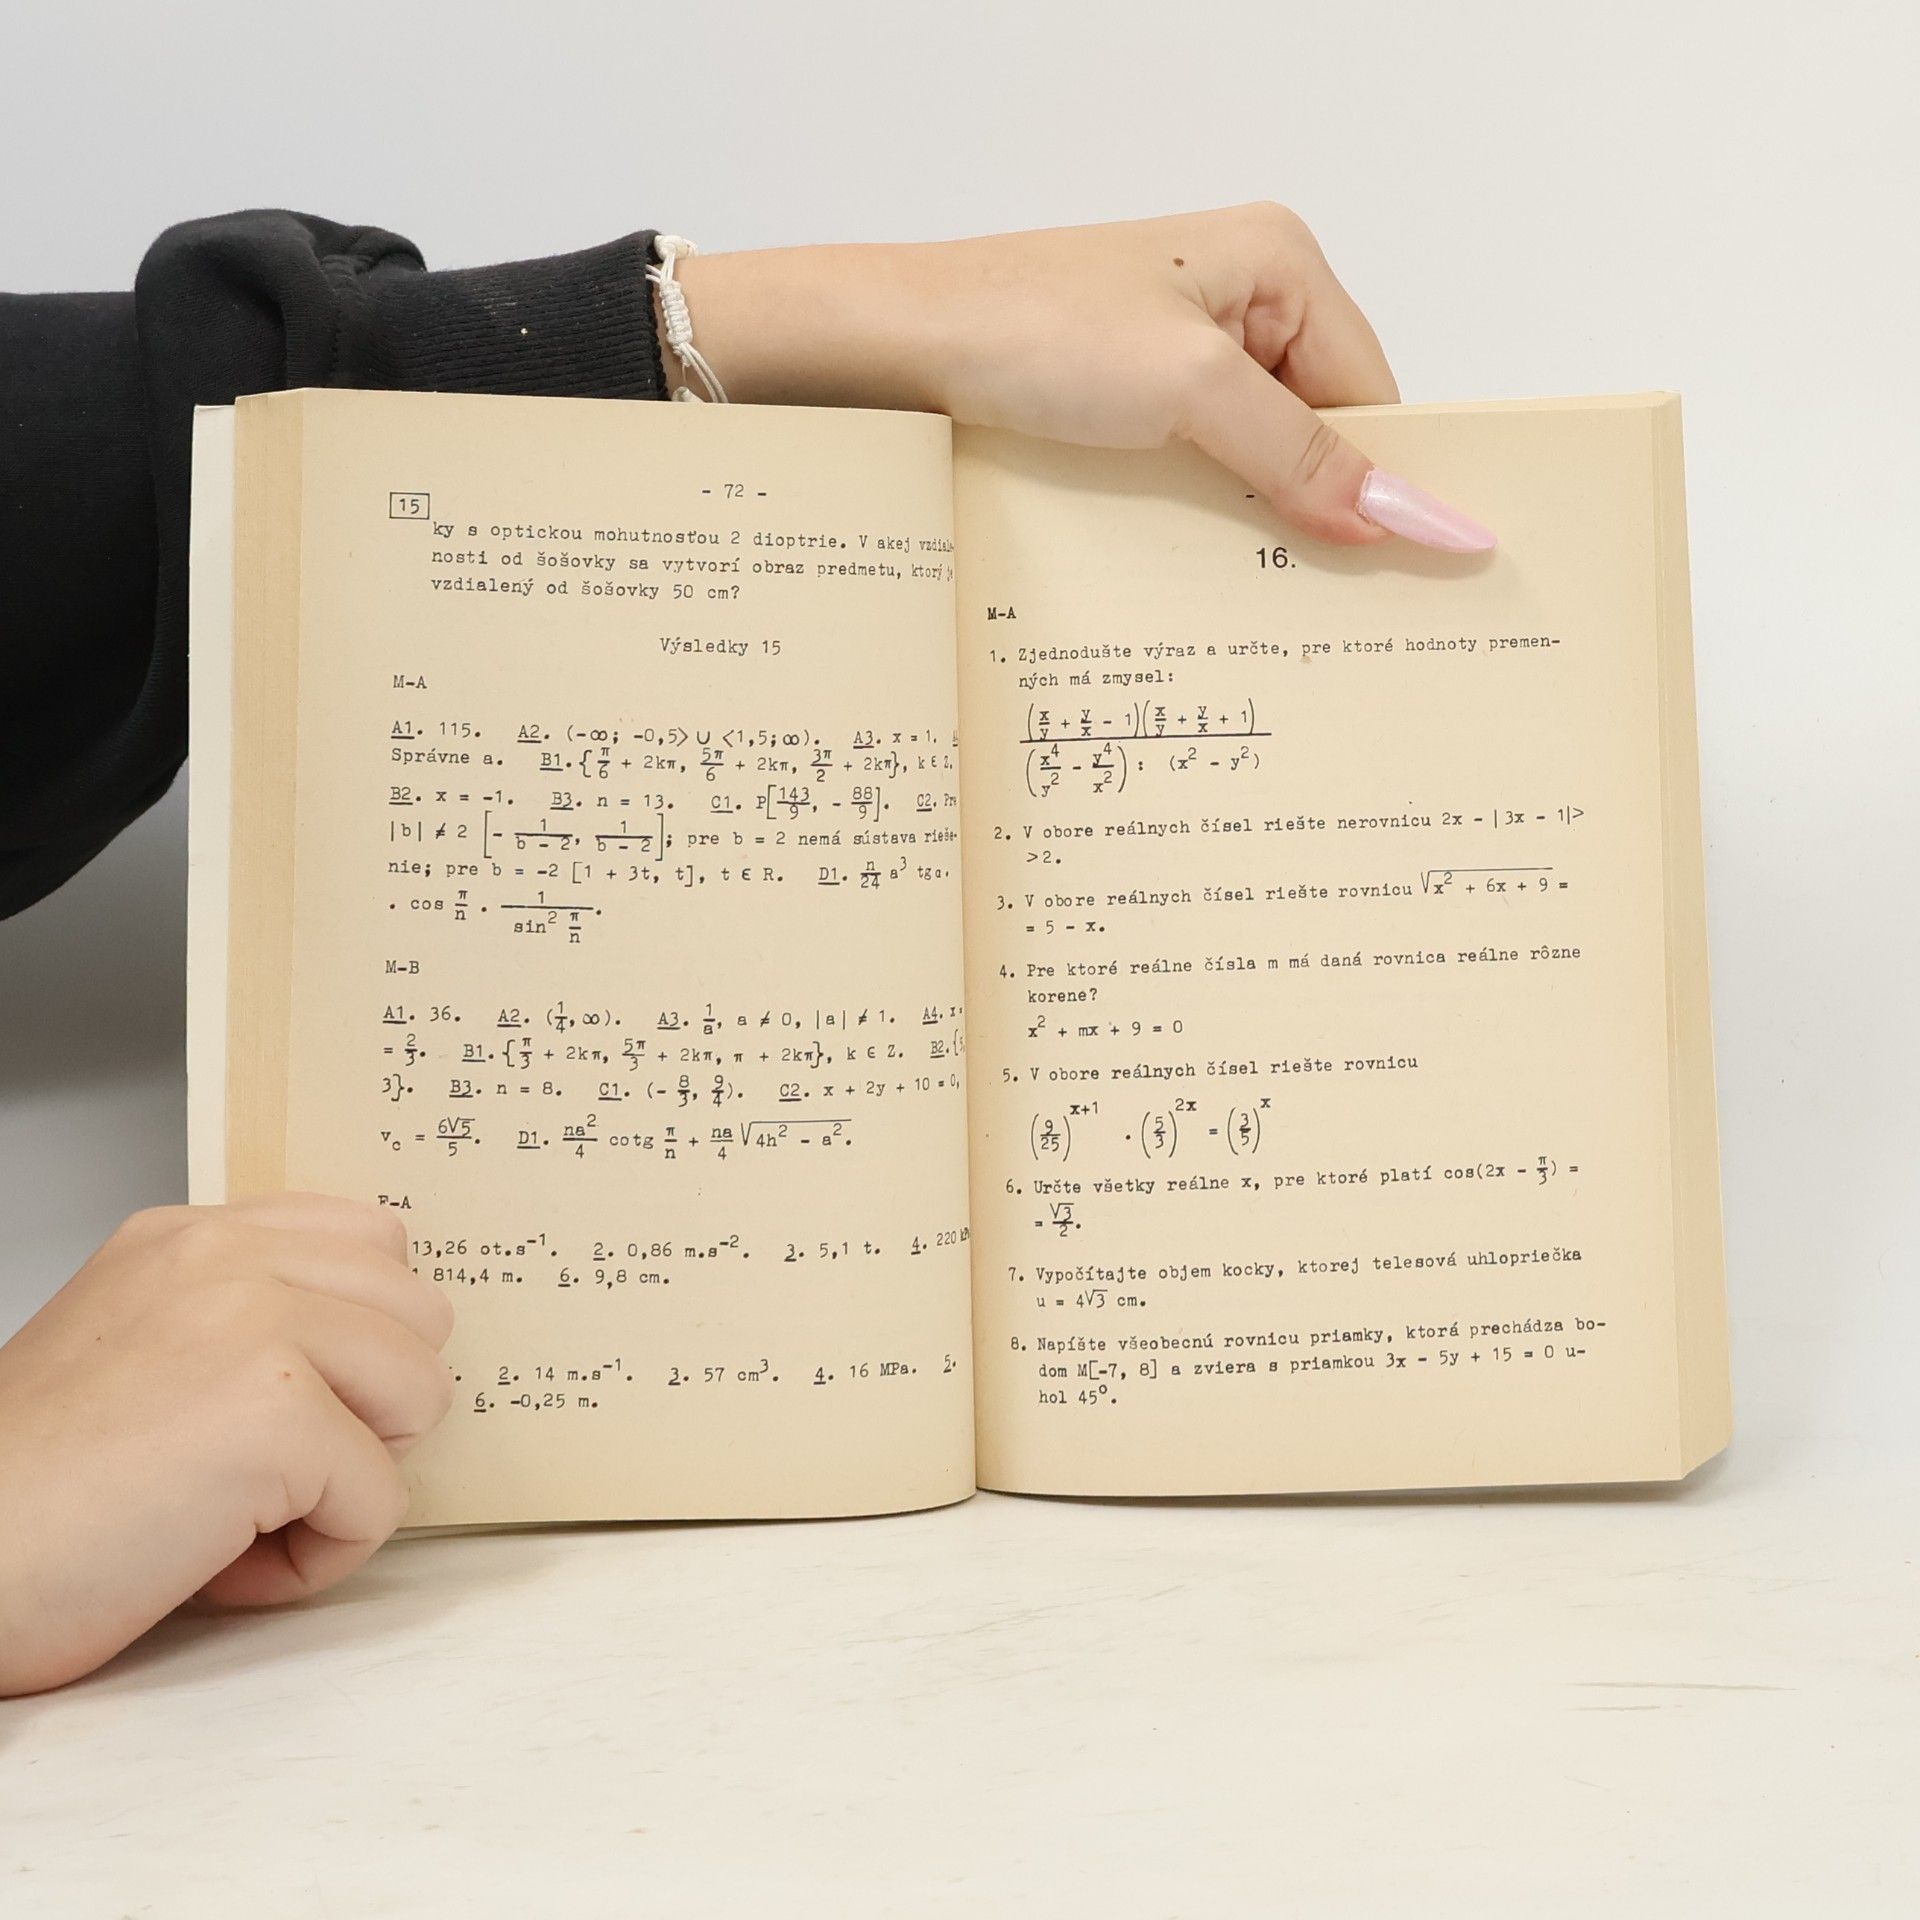 - 72 -
15
ky s optickou mohutnosťou 2 dioptrie. V akej
nosti od šošovky sa vytvorí obraz predmetu, ktorý
vzdialený od šošovky 50 cm?
Výsledky 15
M-A
A1. 115. A2. (-∞; -0,5> ∪ <1,5;∞). A3. x = 1.
Správne a. B1. {π/6 + 2kπ, 5π/6 + 2kπ, 3π/2 + 2kπ}, k ∈ Z.
B2. x = -1. B3. n = 13. C1. P[143/9, - 88/9]. C2. Pre
|b| ≠ 2 [- 1/(b - 2), 1/(b - 2)]; pre b = 2 nemá sústava rieše-
nie; pre b = -2 [1 + 3t, t], t ∈ R. D1. n/24 a³ tgα.
. cos π/n . 1/(sin² π/n).
M-B
A1. 36. A2. (1/4, ∞). A3. 1/a, a ≠ 0, |a| ≠ 1. A4. x =
= 2/3. B1. {π/3 + 2kπ, 5π/3 + 2kπ, π + 2kπ}, k ∈ Z. B2. {5,
3}. B3. n = 8. C1. (- 8/3, 9/4). C2. x + 2y + 10 = 0,
v_c = 6√5/5. D1. na²/4 cotg π/n + na/4 √(4h² - a²).
F-A
13,26 ot.s⁻¹. 2. 0,86 m.s⁻². 3. 5,1 t. 4. 220 kPa
814,4 m. 6. 9,8 cm.
2. 14 m.s⁻¹. 3. 57 cm³. 4. 16 MPa. 5.
6. -0,25 m.
-
16.
M-A
1. Zjednodušte výraz a určte, pre ktoré hodnoty premen-
ných má zmysel:
(x/y + y/x - 1)(x/y + y/x + 1)
(x⁴/y² - y⁴/x²) : (x² - y²)
2. V obore reálnych čísel riešte nerovnicu 2x - |3x - 1|>
>2.
3. V obore reálnych čísel riešte rovnicu √(x² + 6x + 9) =
= 5 - x.
4. Pre ktoré reálne čísla m má daná rovnica reálne rôzne
korene?
x² + mx + 9 = 0
5. V obore reálnych čísel riešte rovnicu
(9/25)^(x+1) . (5/3)^(2x) = (3/5)^x
6. Určte všetky reálne x, pre ktoré platí cos(2x - π/3) =
= √3/2.
7. Vypočítajte objem kocky, ktorej telesová uhlopriečka
u = 4√3 cm.
8. Napíšte všeobecnú rovnicu priamky, ktorá prechádza bo-
dom M[-7, 8] a zviera s priamkou 3x - 5y + 15 = 0 u-
hol 45°.